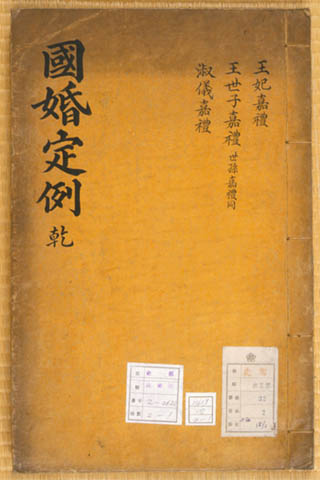 國婚定例 乾
王妃嘉禮
王世子嘉禮 世孫嘉禮同
淑儀嘉禮